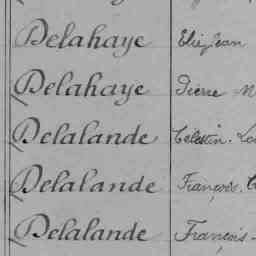 Delahaye Elie Jean
Delahaye Pierre M
Delalande Célestin. Lo
Delalande François.
Delalande François.